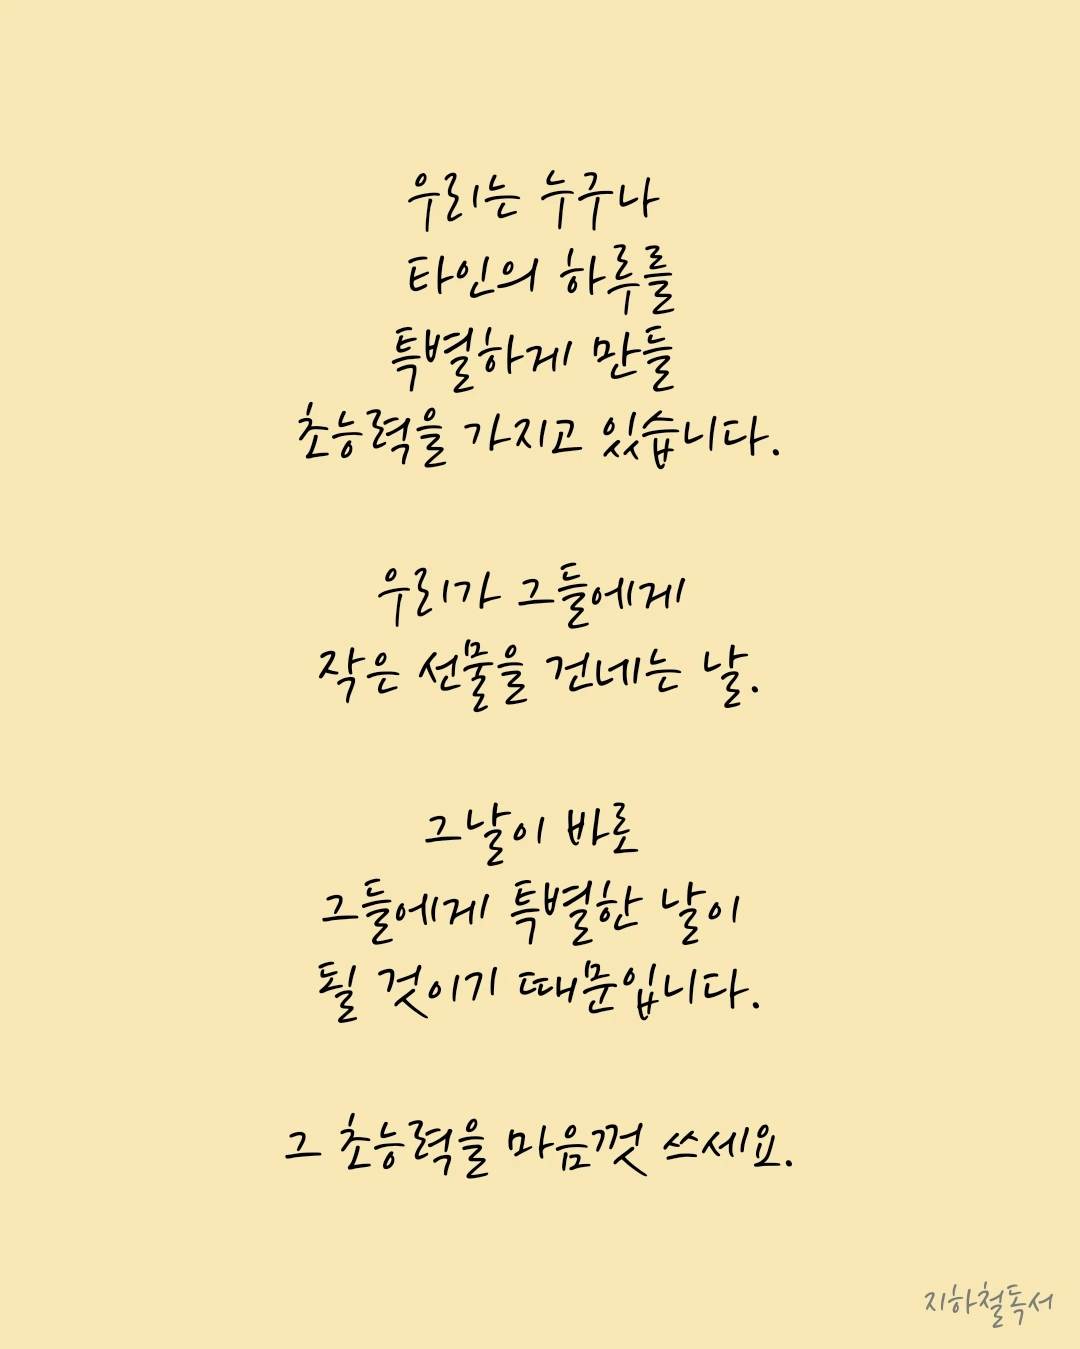 우리는 누구나
타인의 하루를
특별하게 만들
초능력을 가지고 있습니다.
우리가 그들에게
작은 선물을 건네는 날.
그날이 바로
그들에게 특별한 날이
될 것이기 때문입니다.
그 초능력을 마음껏 쓰세요.
지하철독서